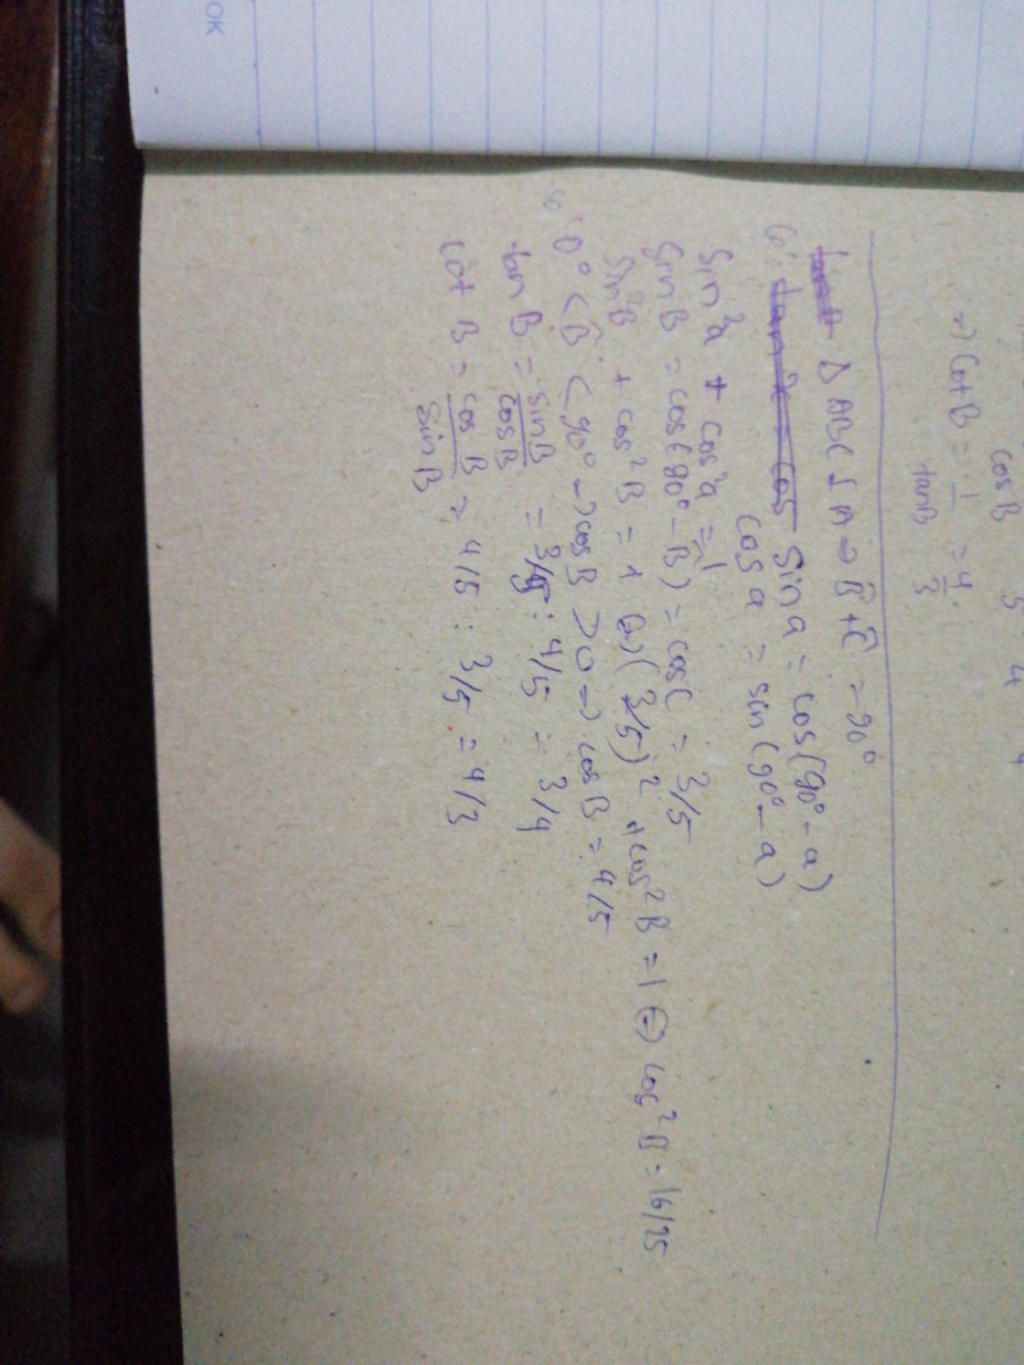 cosB 5 4 4
=) Cot B = 1/tanB = 4/3
Δ ABC ⊥ A => B̂ + Ĉ = 90°
sin a = cos(90° - a)
cos a = sin(90° - a)
sin²a + cos²a = 1
sin B = cos(90° - B) = cosC = 3/5
sin²B + cos²B = 1 (=) (3/5)² + cos²B = 1 (=) cos²B = 16/25
0° < B̂ < 90° => cosB > 0 => cosB = 4/5
tan B = sinB/cosB = 3/5 : 4/5 = 3/4
cot B = cosB/sinB = 4/5 : 3/5 = 4/3
OK